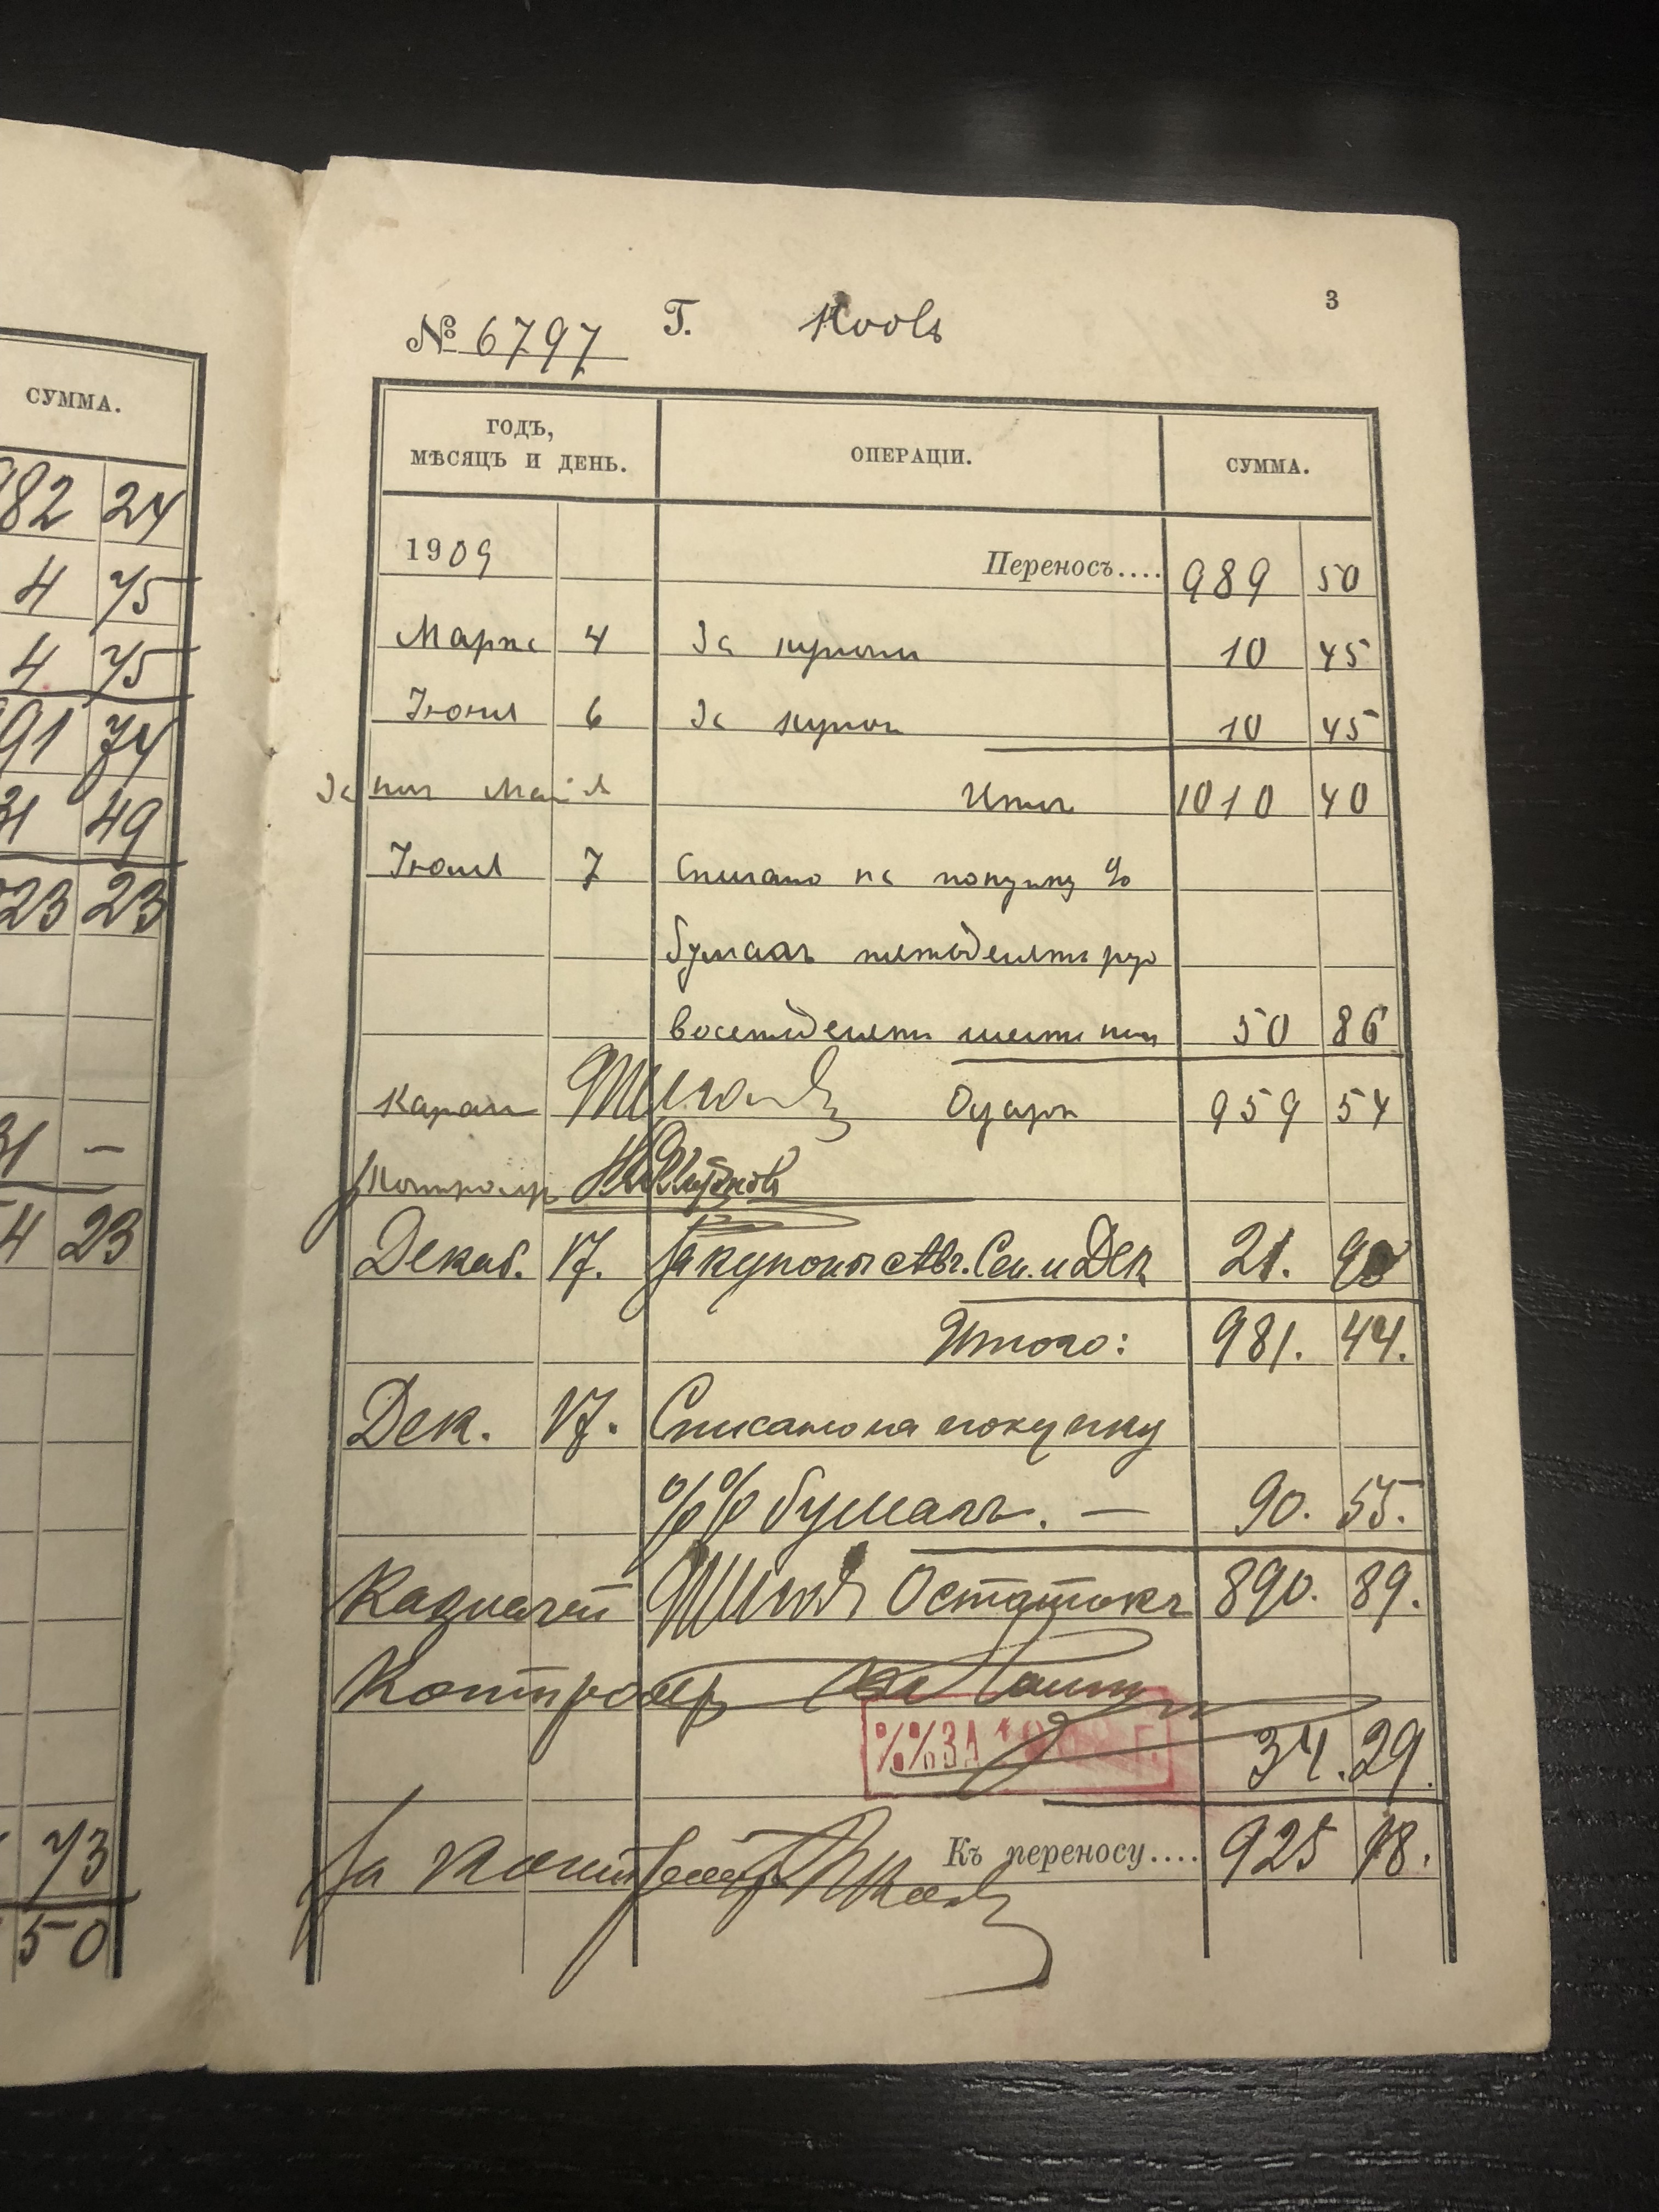 СУММА.
82 24
4 75
4 75
91 74
31 49
23 23
31 —
4 23
73
50
3
№ 6797 Г. Kools
ГОДЪ,
МѢСЯЦЪ И ДЕНЬ. ОПЕРАЦІИ. СУММА.
1909 Переносъ.... 989 50
Марта 4 За купоны 10 45
Іюня 6 За купон 10 45
За Итого 1010 40
Іюня 7 Списано на покупку %
бумагъ пятьдесятъ руб
восемьдесятъ шесть коп 50 86
959 54
Контролеръ
Декаб. 17. За купоны Авг. Сен. и Дек 21. 90
Итого: 981. 44.
Дек. 17. Списано на покупку
%% бумагъ. — 90. 55.
Казначей Остатокъ 890. 89.
Контролер
%% ЗА 19 Г. 34. 29.
За Контролера Къ переносу.... 925 18.